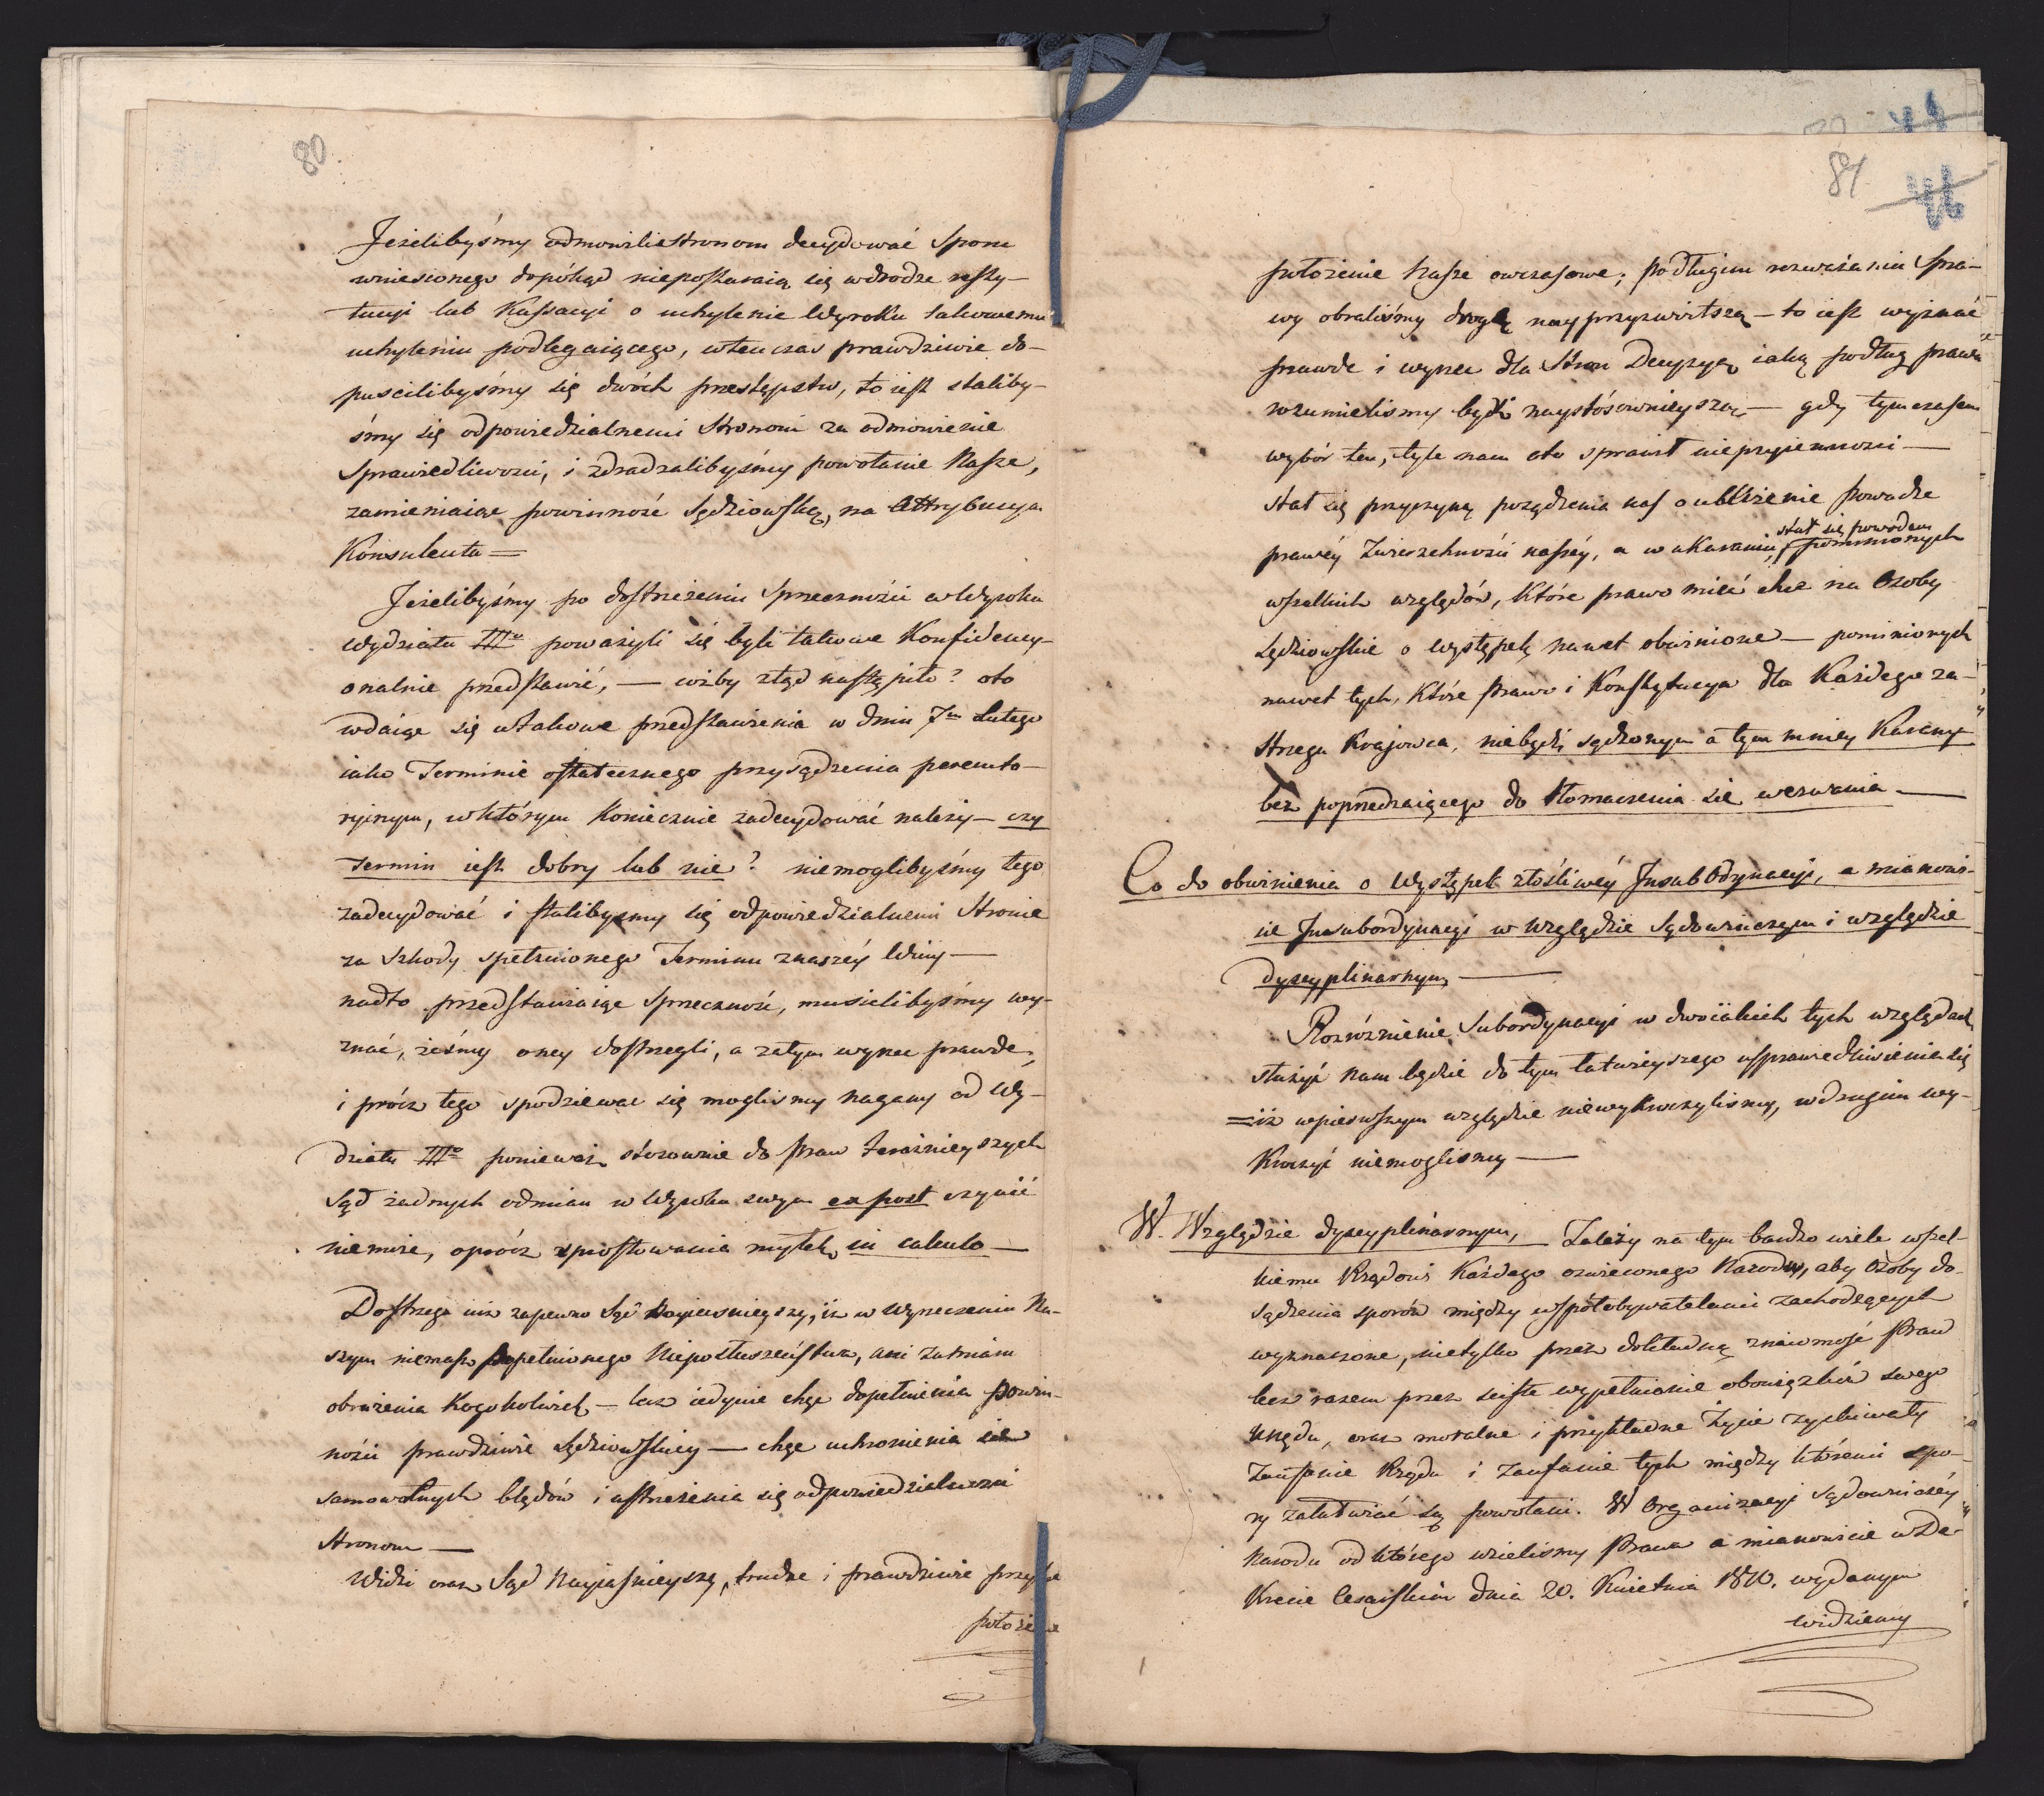 80
Jeżelibyśmy odmowili stronom decydować Sporu
wniesionego dopókąd niepostaraią się w drodze resty-
tucyi lub Kassacyi o uchylenie Wyroku takowemu
uchyleniu podlegaiącego, wtenczas prawdziwie do-
puscilibyśmy się dwóch przestępstw, to iest staliby-
śmy się odpowiedzialnemi Stronom za odmowienie
Sprawiedliwości, i zdradzalibyśmy powołanie Nasze,
zamieniaiąc powinność Sędziowską, na Attrybucyą
Konsulenta =
Jeżelibyśmy po dostrzeżeniu Sprzeczności w Wyroku
Wydziału IIIo poważyli się byli takowe Konfidency-
onalnie przedstawić, — cóżby ztąd nastąpiło? oto
wdaiąc się w takowe przedstawienia w dniu 7m Lutego
iako Terminie ostatecznego przysądzenia peremto-
ryinym, w którym koniecznie zadecydować należy — czy
Termin iest dobry lub nie? niemoglibyśmy tego
zadecydować i stalibysmy się odpowiedzialnemi Stronie
za Szkody spełznionego Terminu z naszéy Winy —
nadto przedstawiaiąc Sprzeczność, musielibyśmy wy-
znać, żeśmy oney dostrzegli, a zatym wyrzec prawdę;
i prócz tego spodziewac się moglismy nagany od Wy-
działu IIIo ponieważ stósownie do Praw teraźnieyszych
Sąd żadnych odmian w Wyroku swym ex post czynić
niemoże, oprócz sprostowania myłek in calculo —
Dostrzega iuż zapewne Sąd Nayiaśnieyszy, iż w wyrzeczeniu Na-
szym niemasz popełnionego Nieposłuszeństwa, ani zamiaru
obrażenia Kogokolwiek — lecz iedynie chęć dopełnienia powin-
ności prawdziwie Sędziowskiey — chęć uchronienia się
samowolnych błędów i ustrzeżenia się odpowiedzialności
Stronom —
Widzi oraz Sąd Nayjaśnieyszy, trudne i prawdziwie przykre
położenie
81 46
położenie Nasze owczasowe; po długim rozważaniu Spra-
wy obraliśmy drogę nayprzyzwoitszą — to iest wyznać
prawdę i wyrzec dla Stron Decyzyą iaką podług prawa
rozumielismy bydź naystósownieyszą — gdy tymczasem
wybór ten, tyle nam oto sprawił nieprzyiemności —
stał się przyczyną posądzenia nas o ubliżenie powadze
prawéy Zwierzchności naszéy, a w ukaraniu, stał się powodem pominionych
wszelkich względów, które prawo mieć chce na Osoby
Sędziowskie o występek nawet obwinione — pominionych
nawet tych, które Prawo i Konstytucya dla Każdego za-
strzega Krajowca, niebydź sądzonym a tym mniey Karany
bez poprzedzaiącego do tłomaczenia się wezwania —
Co do obwinienia o Występek złośliwéy Insubordynacyi, a mianowi-
cie Insubordynacyi w Względzie Sądowniczym i względzie
dyscyplinarnym, —
Rozróżnienie Subordynacyi w dwoiakich tych względach
służyć nam będzie do tym łatwieyszego usprawiedliwienia się
= iż w pierwszym względzie niewykroczylismy, w drugim wy-
kroczyć niemoglismy —
W. Względzie dyscyplinarnym, Zależy na tym bardzo wiele wszel-
kiemu Rządowi Każdego oświeconego Narodu, aby Osoby do
sądzenia sporów między współobywatelami zachodzących
wyznaczone, nietylko przez dokładną znaiomość Praw
lecz razem przez ściste wypełnianie obowiązków swego
Urzędu, oraz moralne i przykładne Życie zyskiwały
Zaufanie Rządu i zaufanie tych między któremi spo-
ry załatwiać są powołani. W Organizacyi Sądowniczéy
Narodu od którego wzielismy Prawa a mianowicie w De-
krecie Cesarskim dnia 20. Kwietnia 1810. wydanym
widziemy